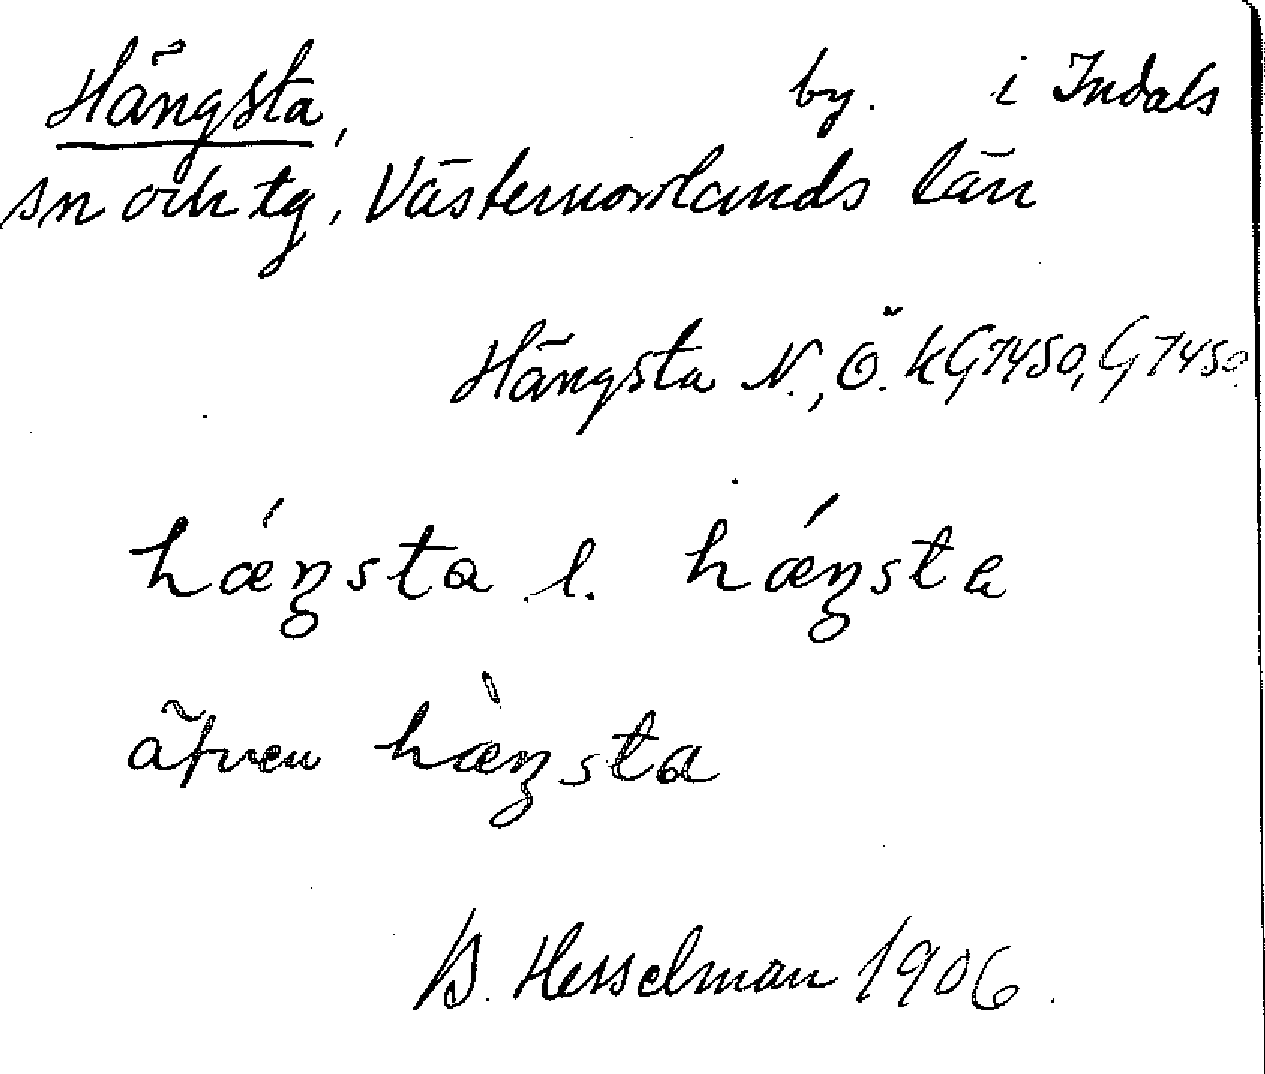 Hängsta, by. i Indals
sn och tg, Västernorrlands län
Hängsta N., Ö. kG7450, G7450.
hǽŋsta l. hǽŋsta
äfven hæ̀ŋsta
B. Hesselman 1906.